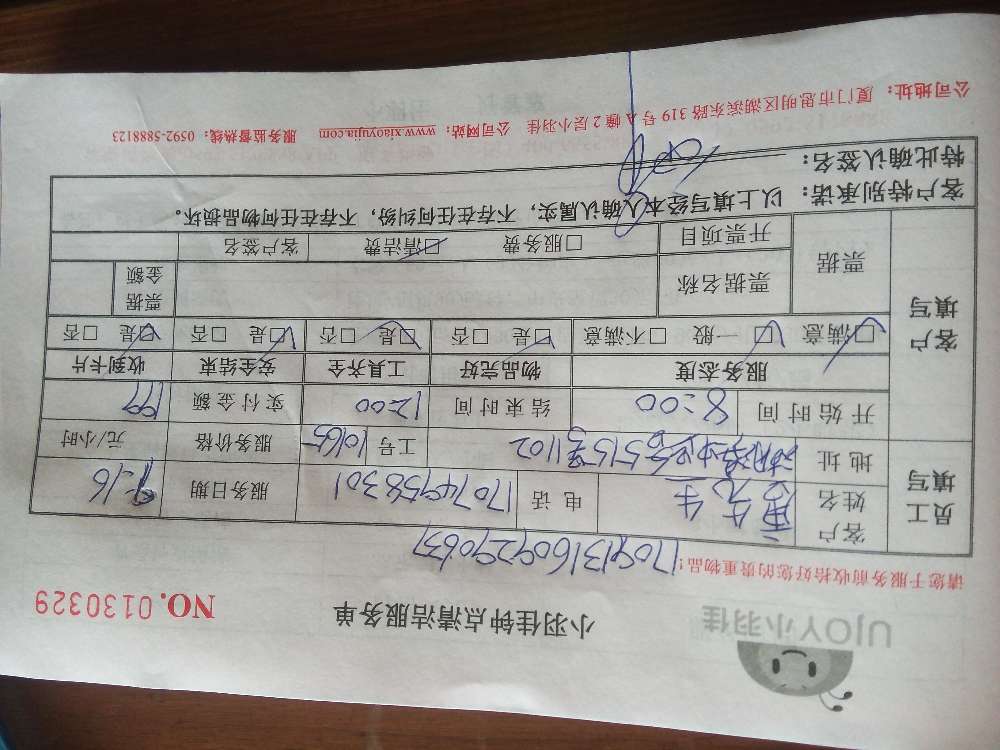 UJOY小羽佳
小羽佳钟点清洁服务单 NO. 0130329
请您于服务前收拾好您的贵重物品!
员工填写 客户姓名 先生 电话 17074958301 服务日期 9-16
地址 515号1102 工号 10165 服务价格 元/小时
开始时间 8:00 结束时间 12:00 实付金额 199
客户填写 服务态度 物品完好 工具齐全 安全结束 收到卡片
☑满意 ☑一般 □不满意 ☑是 □否 ☑是 □否 ☑是 □否 ☑是 □否
票据 票据名称 票据金额
开票项目 □服务费 ☑清洁费 客户签名
客户特别承诺: 以上填写经本人确认属实, 不存在任何纠纷, 不存在任何物品损坏。
特此确认签名:
公司地址: 厦门市思明区湖滨东路319号A幢2层小羽佳 公司网站: www.xiaoyujia.com 服务监督热线: 0592-5888123